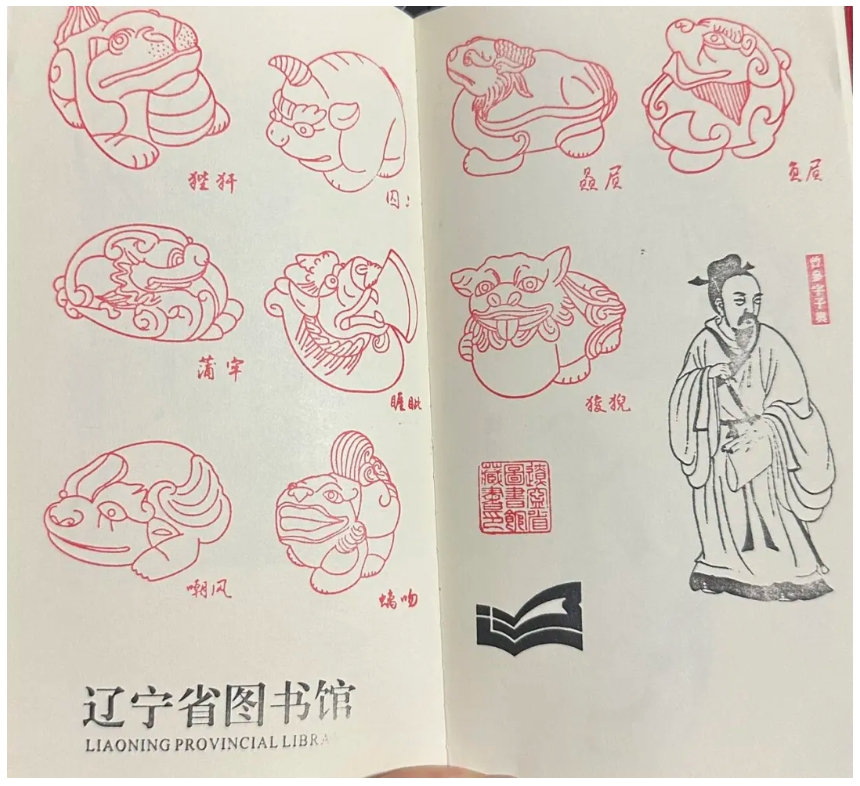 狴犴
囚
蒲牢
睚眦
嘲风
螭吻
辽宁省图书馆
LIAONING PROVINCIAL LIBRA
赑屃
负屃
狻猊
遼寧省
圖書館
藏書印